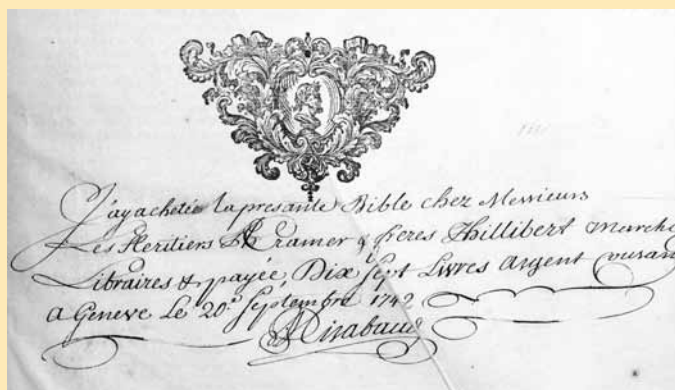 J'ay achetée la presante Bible chez Messieurs
Les Heritiers Cramer & freres Philibert march
Libraires & payée, Dix sept Livres argent couran
a Geneve Le 20.e Septembre 1742
Mirabaud